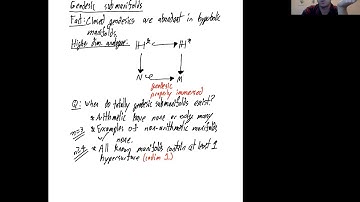 Geodesic submanifolds
Fact: Closed geodesics are abundant in hyperbolic
manifolds
Higher dim analogue:
ℍ* ↪ ℍ*
↓ ↓
N ↪ M
geodesic
properly immersed
Q: When do totally geodesic submanifolds exist?
* Arithmetic have none or many
n=3 * Examples of non-arithmetic manifolds
w/ none.
* All known manifolds contain at least 1
hypersurface (codim 1)